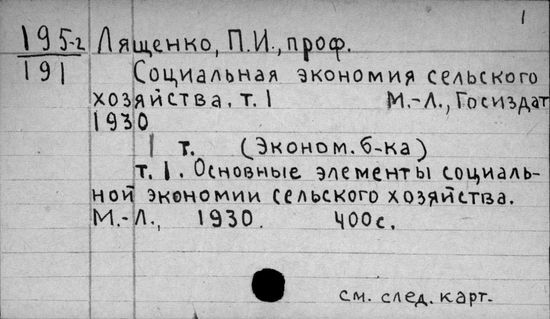 1
195-2 Лященко, П.И., проф.
191 Социальная экономия сельского
хозяйства. т. 1 М.-Л., Госиздат
1930
1 т. (Эконом. б-ка)
т. 1. Основные элементы социаль-
ной экономии сельского хозяйства.
М.-Л., 1930. 400с.
см. след. карт.